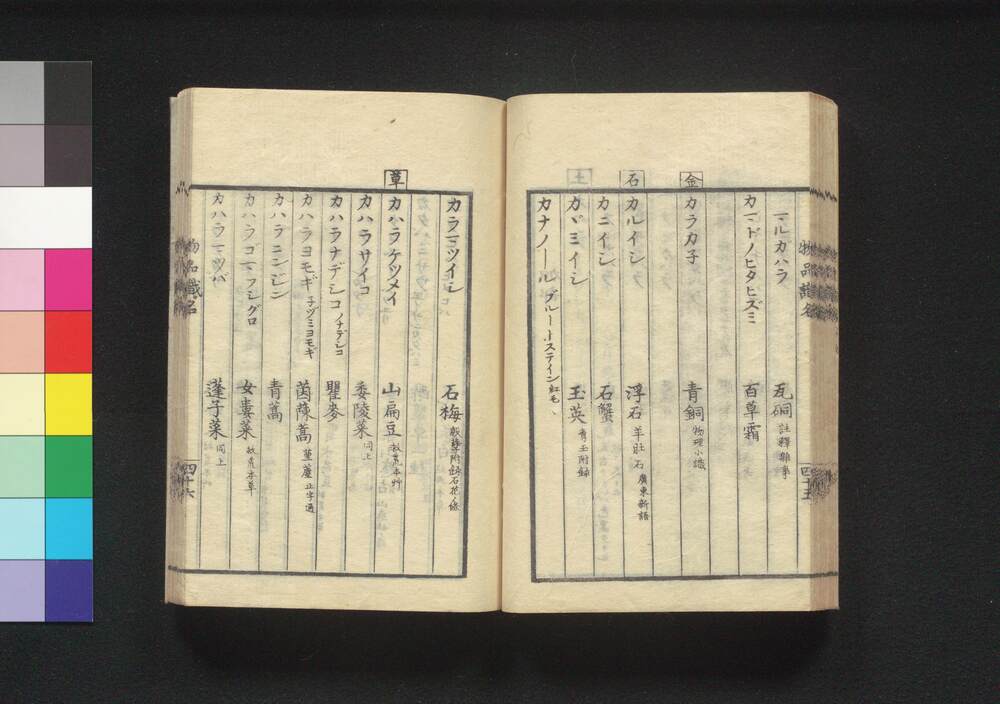 マルガハラ 瓦硐 註釋雜事
カマドノヒタヒズミ 百草霜
金
カラカ子 青銅 物理小識
石
カルイシ 浮石 羊肚石 廣東新語
カニイシ 石蟹
土
カヾミイシ 玉英 青玉附録
カナノール ブルートステイン紅毛
物品識名
四十五
カラマツイシ 石梅 殷孽附録石花ノ條
草
カハラケツメイ 山扁豆 救荒本艸
カハラサイコ 委陵菜 同上
カハラナデシコ ノナデシコ 瞿麥
カハラヨモギ 子ヅミヨモギ 茵蔯蒿 正字通
カハラニンジン 青蒿
カハラゴマ フシグロ 女婁菜 救荒本草
カハラマツバ 蓬子菜 同上
物品識名
四十六